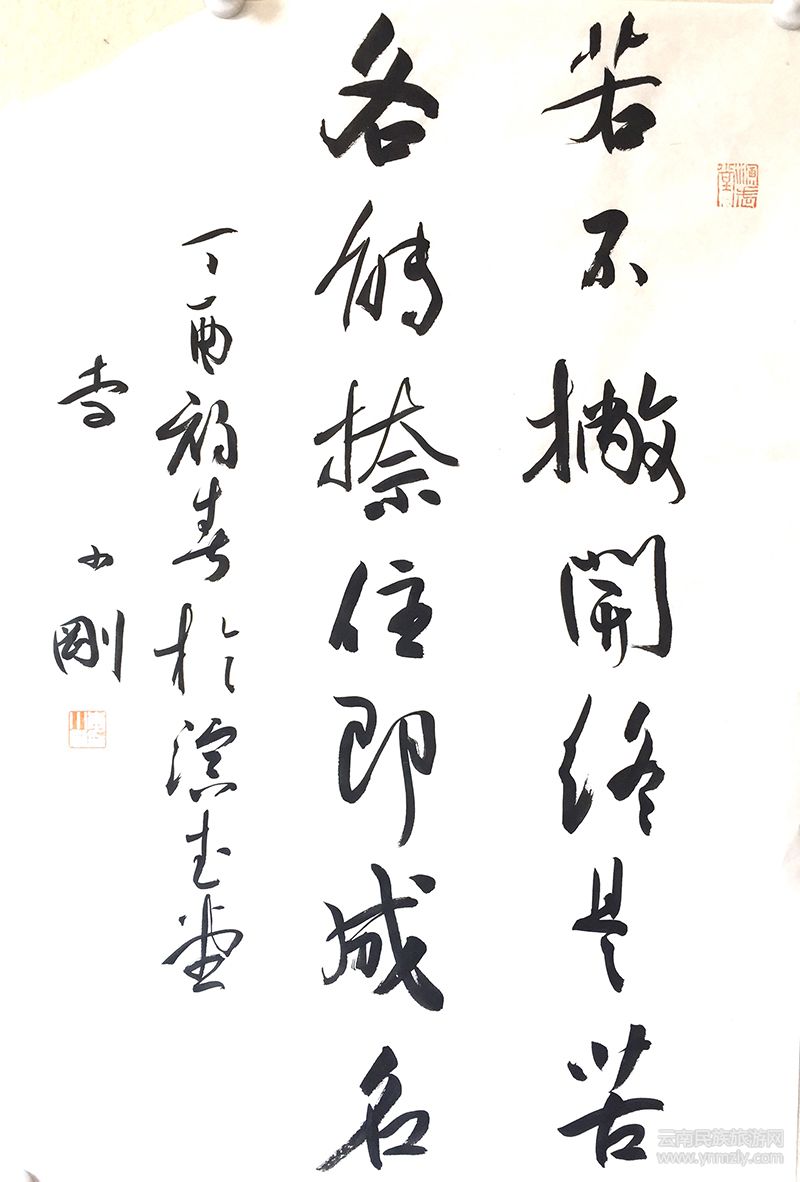 若不撇開終是苦
各能捺住即成名
丁酉初春於滇堂
李小剛
云南民族旅游网
www.ynmzly.com